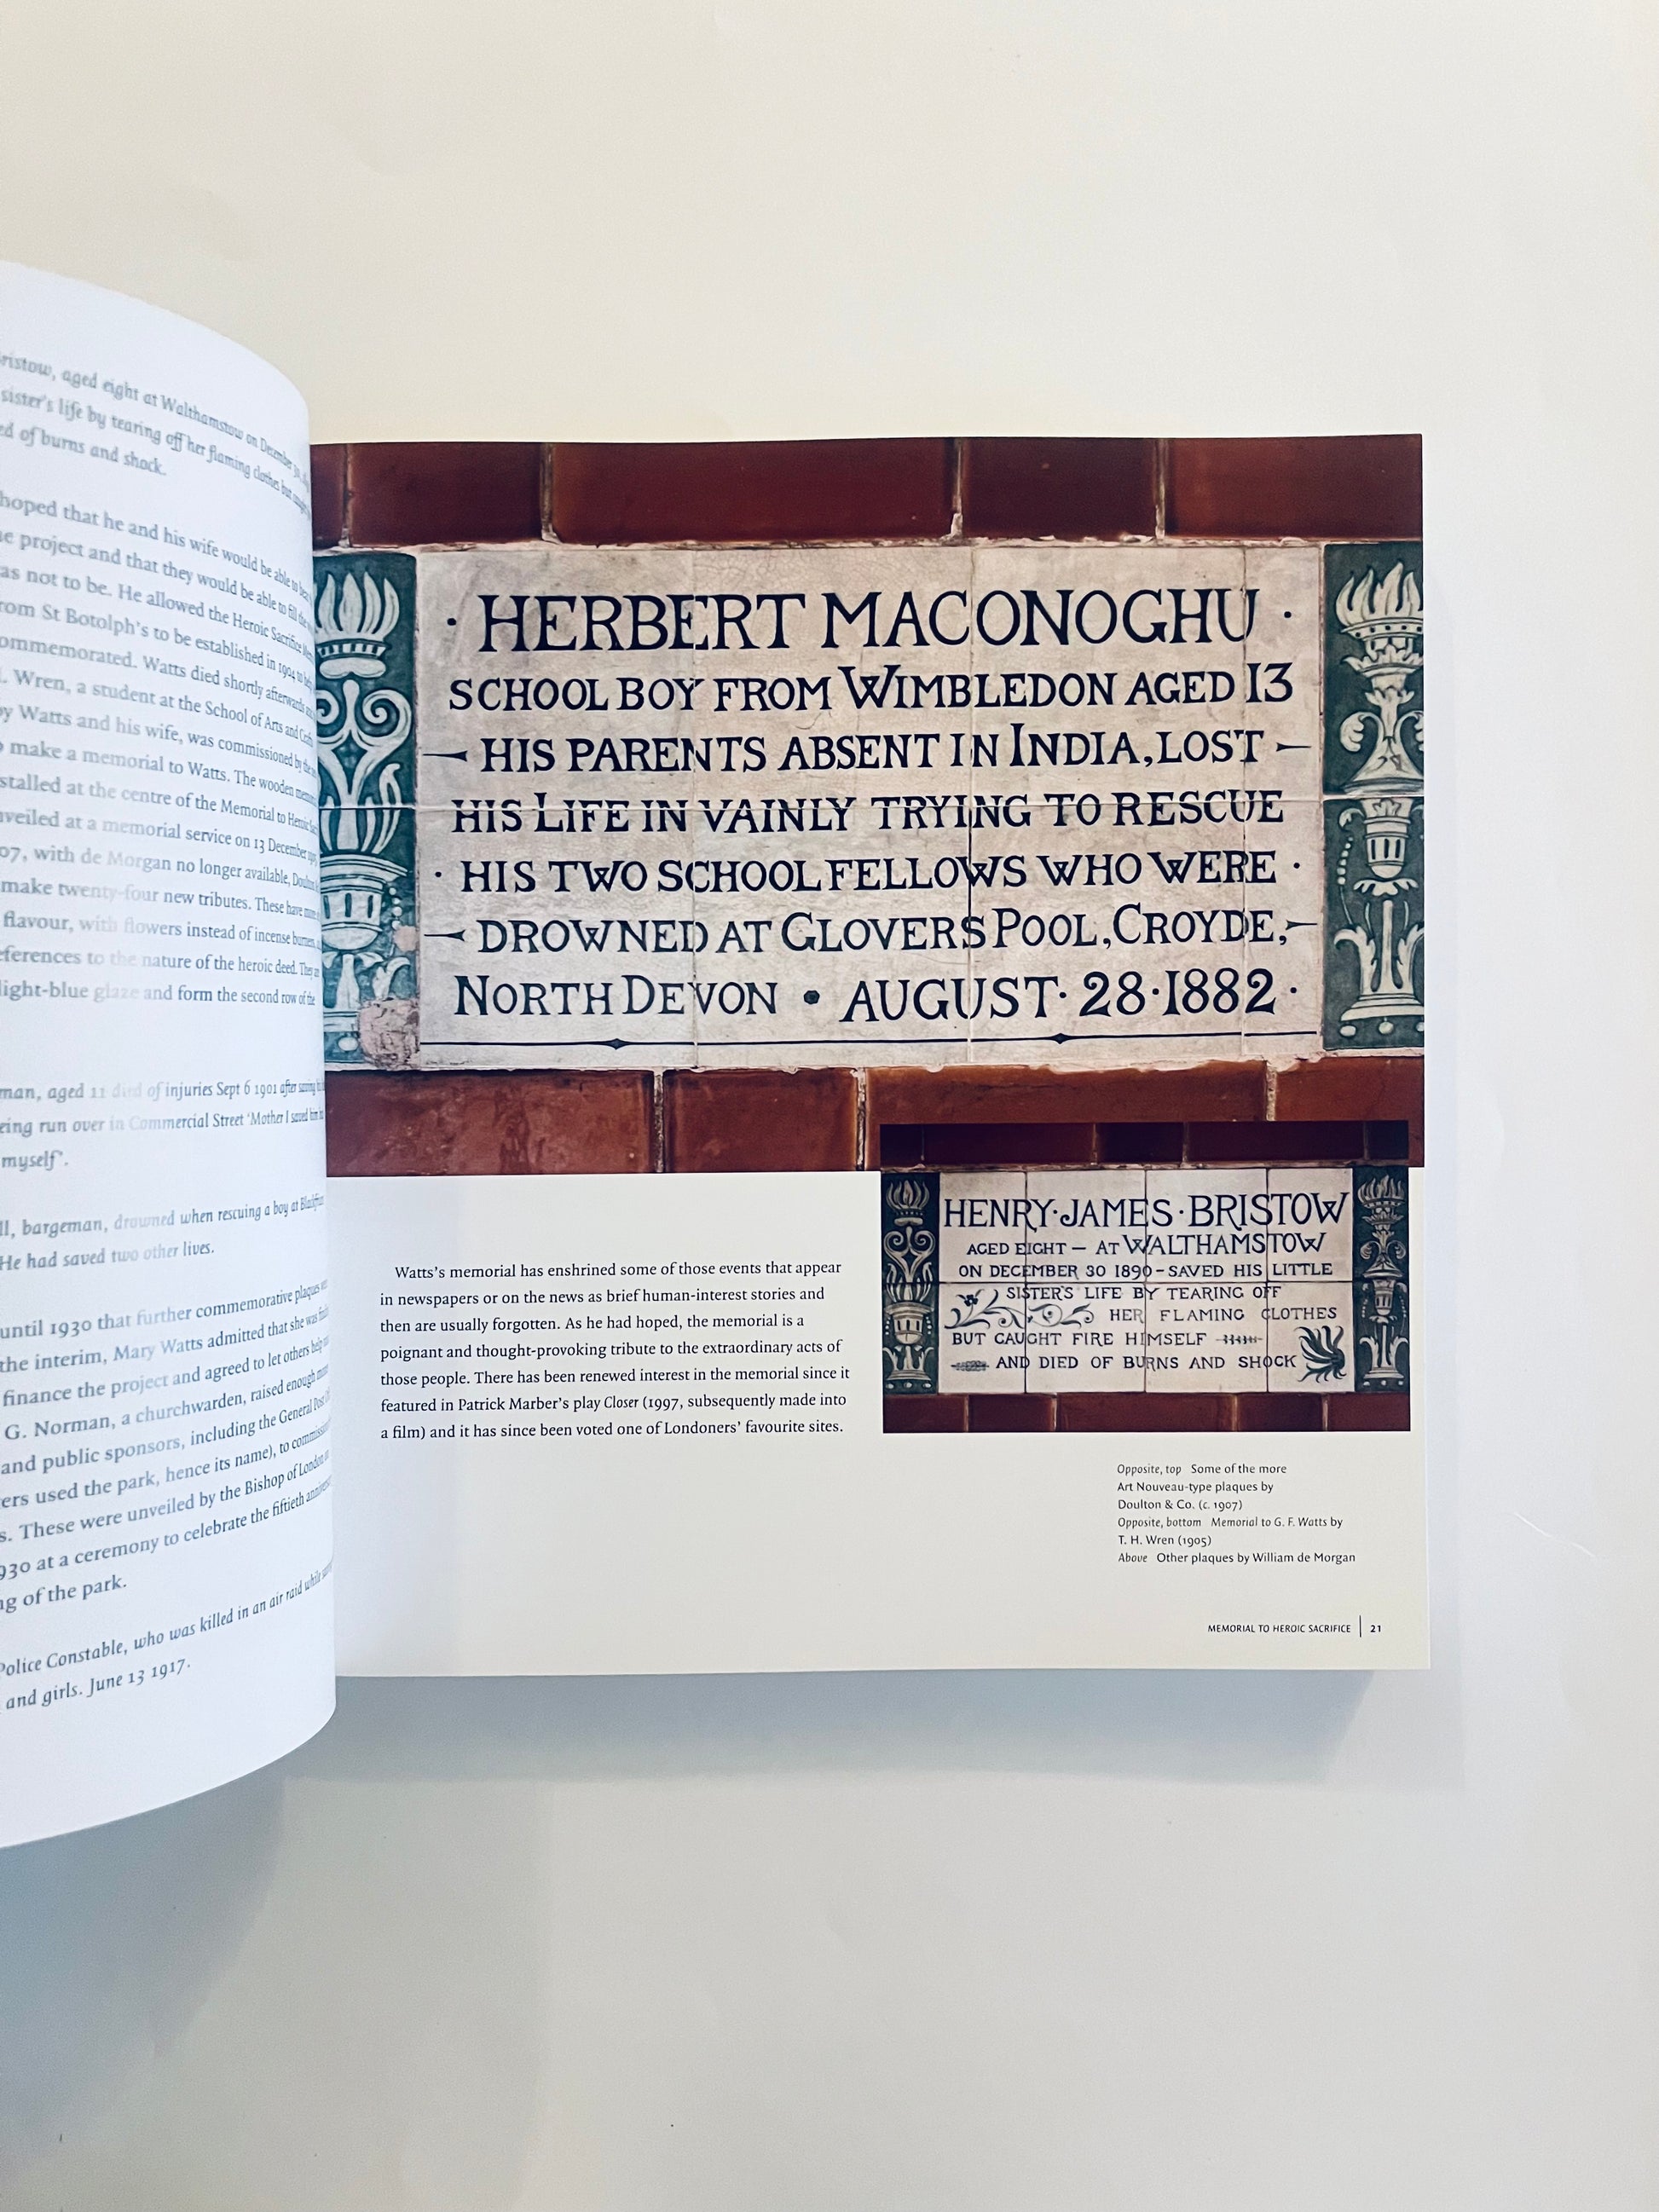 ristow, aged eight at Walthamstow on December
sister's life by tearing off her flaming clothes but
ed of burns and shock.
hoped that he and his wife would be able to
e project and that they would be able to fill the
as not to be. He allowed the Heroic Sacrifice
rom St Botolph's to be established in 1904 to
ommemorated. Watts died shortly afterwards
. Wren, a student at the School of Arts and
by Watts and his wife, was commissioned by the
o make a memorial to Watts. The wooden
stalled at the centre of the Memorial to Heroic
veiled at a memorial service on 13 December
07, with de Morgan no longer available, Doulton
make twenty-four new tributes. These have
flavour, with flowers instead of incense burners,
ferences to the nature of the heroic deed. They
light-blue glaze and form the second row of the
man, aged 11 died of injuries Sept 6 1901 after saving
eing run over in Commercial Street 'Mother I saved him
myself'.
ll, bargeman, drowned when rescuing a boy at
He had saved two other lives.
until 1930 that further commemorative plaques
the interim, Mary Watts admitted that she was
finance the project and agreed to let others help
G. Norman, a churchwarden, raised enough
and public sponsors, including the General Post
ers used the park, hence its name), to
s. These were unveiled by the Bishop of London
930 at a ceremony to celebrate the fiftieth
ng of the park.
Police Constable, who was killed in an air raid while
and girls. June 13 1917.
· HERBERT MACONOGHU ·
SCHOOL BOY FROM WIMBLEDON AGED 13
HIS PARENTS ABSENT IN INDIA, LOST
HIS LIFE IN VAINLY TRYING TO RESCUE
· HIS TWO SCHOOL FELLOWS WHO WERE ·
DROWNED AT GLOVERS POOL, CROYDE,
NORTH DEVON • AUGUST · 28 · 1882 ·
HENRY · JAMES · BRISTOW
AGED EIGHT – AT WALTHAMSTOW
ON DECEMBER 30 1890 – SAVED HIS LITTLE
SISTER'S LIFE BY TEARING OFF
HER FLAMING CLOTHES
BUT CAUGHT FIRE HIMSELF
AND DIED OF BURNS AND SHOCK
Watts's memorial has enshrined some of those events that appear
in newspapers or on the news as brief human-interest stories and
then are usually forgotten. As he had hoped, the memorial is a
poignant and thought-provoking tribute to the extraordinary acts of
those people. There has been renewed interest in the memorial since it
featured in Patrick Marber's play Closer (1997, subsequently made into
a film) and it has since been voted one of Londoners' favourite sites.
Opposite, top Some of the more
Art Nouveau-type plaques by
Doulton & Co. (c. 1907)
Opposite, bottom Memorial to G. F. Watts by
T. H. Wren (1905)
Above Other plaques by William de Morgan
MEMORIAL TO HEROIC SACRIFICE | 21